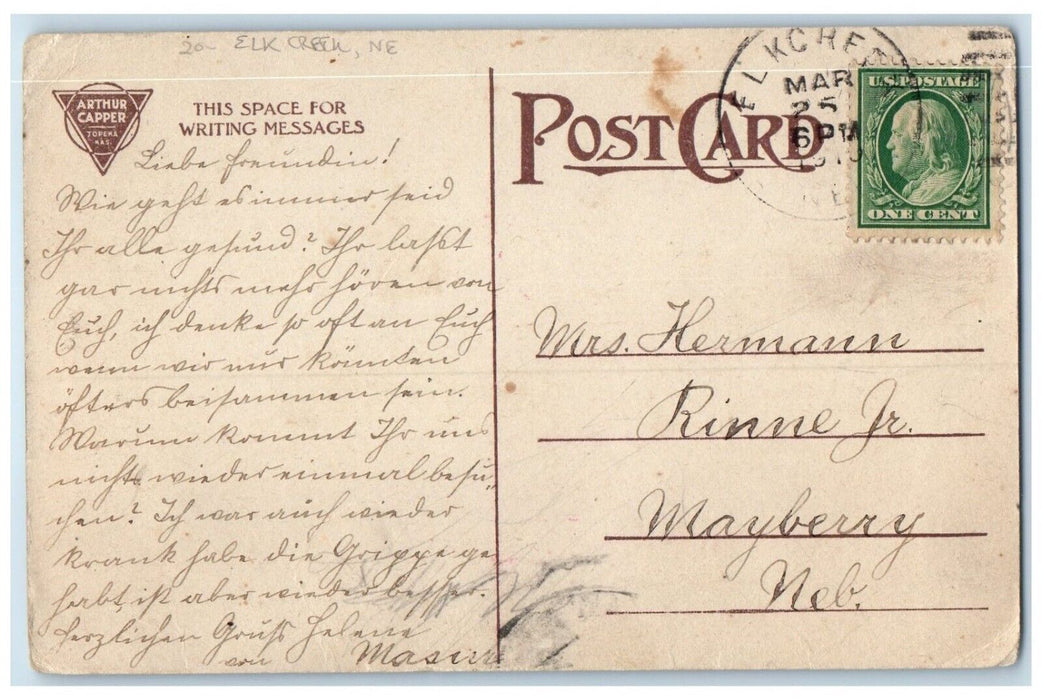 20- ELK CREEK, NE
ARTHUR
CAPPER
TOPEKA
KAS.
THIS SPACE FOR
WRITING MESSAGES
Liebe Freundin!
Wie geht es immer seid
Ihr alle gesund? Ihr lasst
gar nichts mehr hören von
Euch, ich denke so oft an Euch
wenn wir nur könnten
öfters beisammen sein.
Warum kommt Ihr uns
nicht wieder einmal besu-
chen? Ich war auch wieder
krank habe die Grippe ge
habt, ist aber wieder besser.
herzlichen Gruss Helene
von
POST CARD
ELK CREEK
MAR
25
6 PM
1910
NE
U.S. POSTAGE
ONE CENT
Mrs. Hermann
Rinne Jr.
Mayberry
Neb.